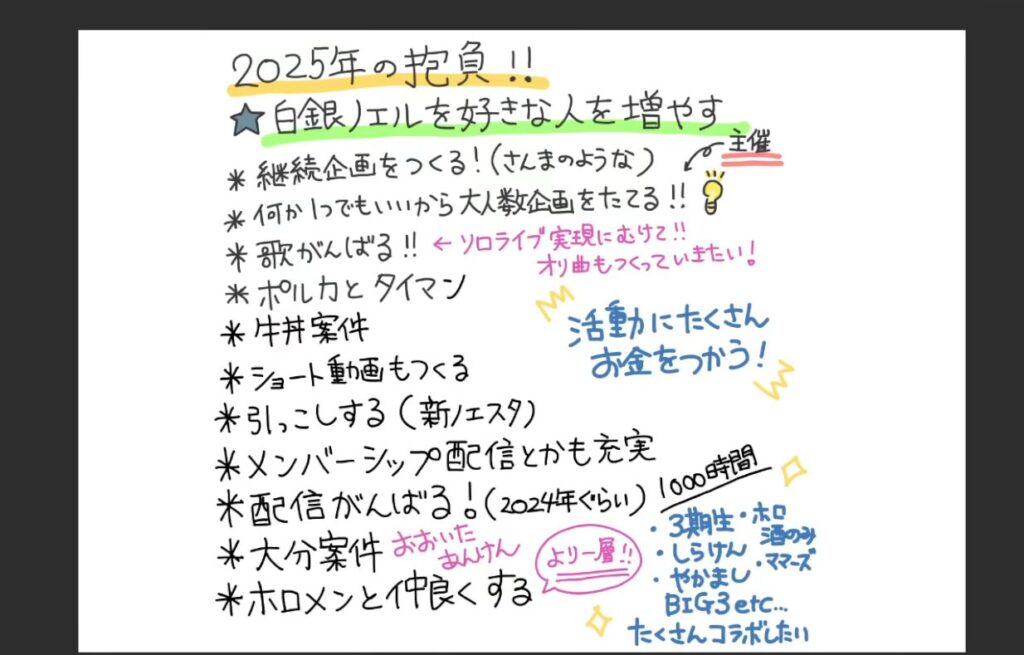 2025年の抱負!!
★白銀ノエルを好きな人を増やす
主催
*継続企画をつくる!(さんまのような)
*何か1つでもいいから大人数企画をたてる!!
*歌がんばる!! ←ソロライブ実現にむけて!!
オリ曲もつくっていきたい!
*ポルカとタイマン
*牛丼案件
活動にたくさん
お金をつかう!
*ショート動画もつくる
*引っこしする(新ノエスタ)
*メンバーシップ配信とかも充実
*配信がんばる!(2024年ぐらい) 1000時間
*大分案件 おおいた
あんけん
*ホロメンと仲良くする
より一層!!
・3期生 ・ホロ
酒のみ
・しらけん ・ママーズ
・やかまし
BIG3 etc...
たくさんコラボしたい